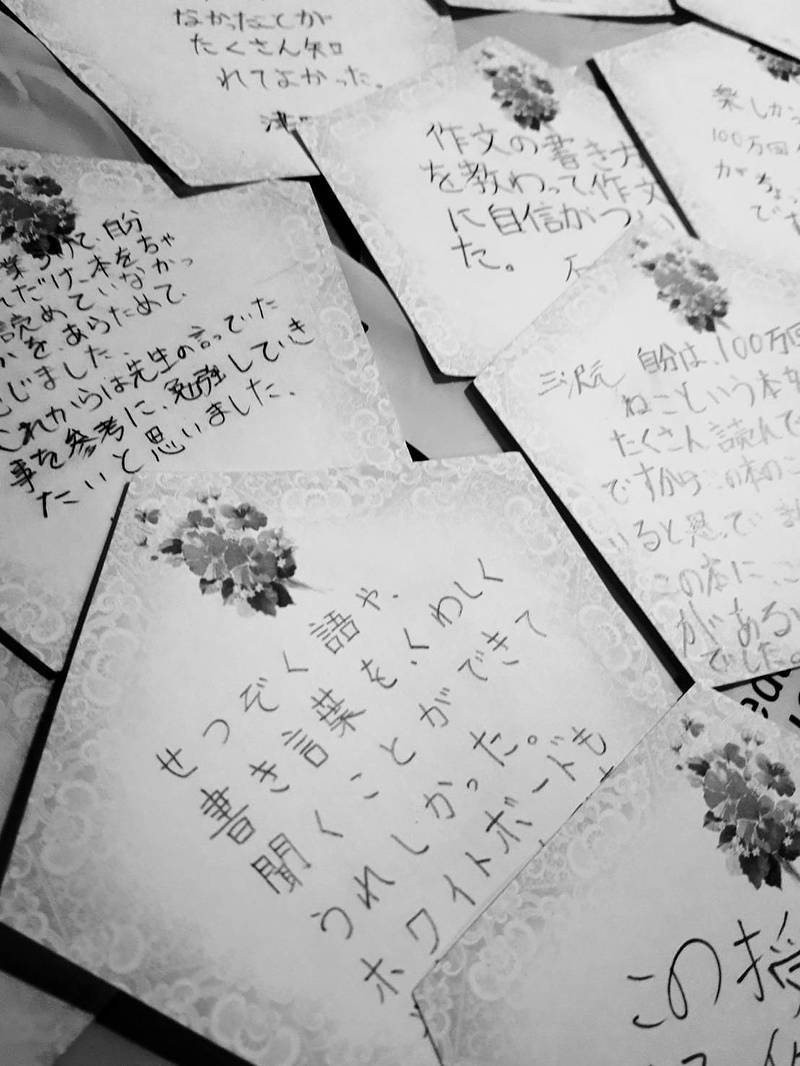 なかったことが
たくさん知
れてよかった。
作文の書き方
を教わって作文
に自信がつい
た。
楽しかっ
100万回
がちょっ
業うけて、自分
れだけ、本をちゃ
読めていなかっ
かを、あらためて、
じました。
これからは先生の言っていた
事を参考に、勉強していき
たいと思いました。
自分は、100万回
ねこという本を
たくさん読んで
ですから この本のこ
いると思って
この本に、こ
がある
でした。
せつぞく語や、
書き言葉を、くわしく
聞くことができて
うれしかった。
ホワイトボードも
この授